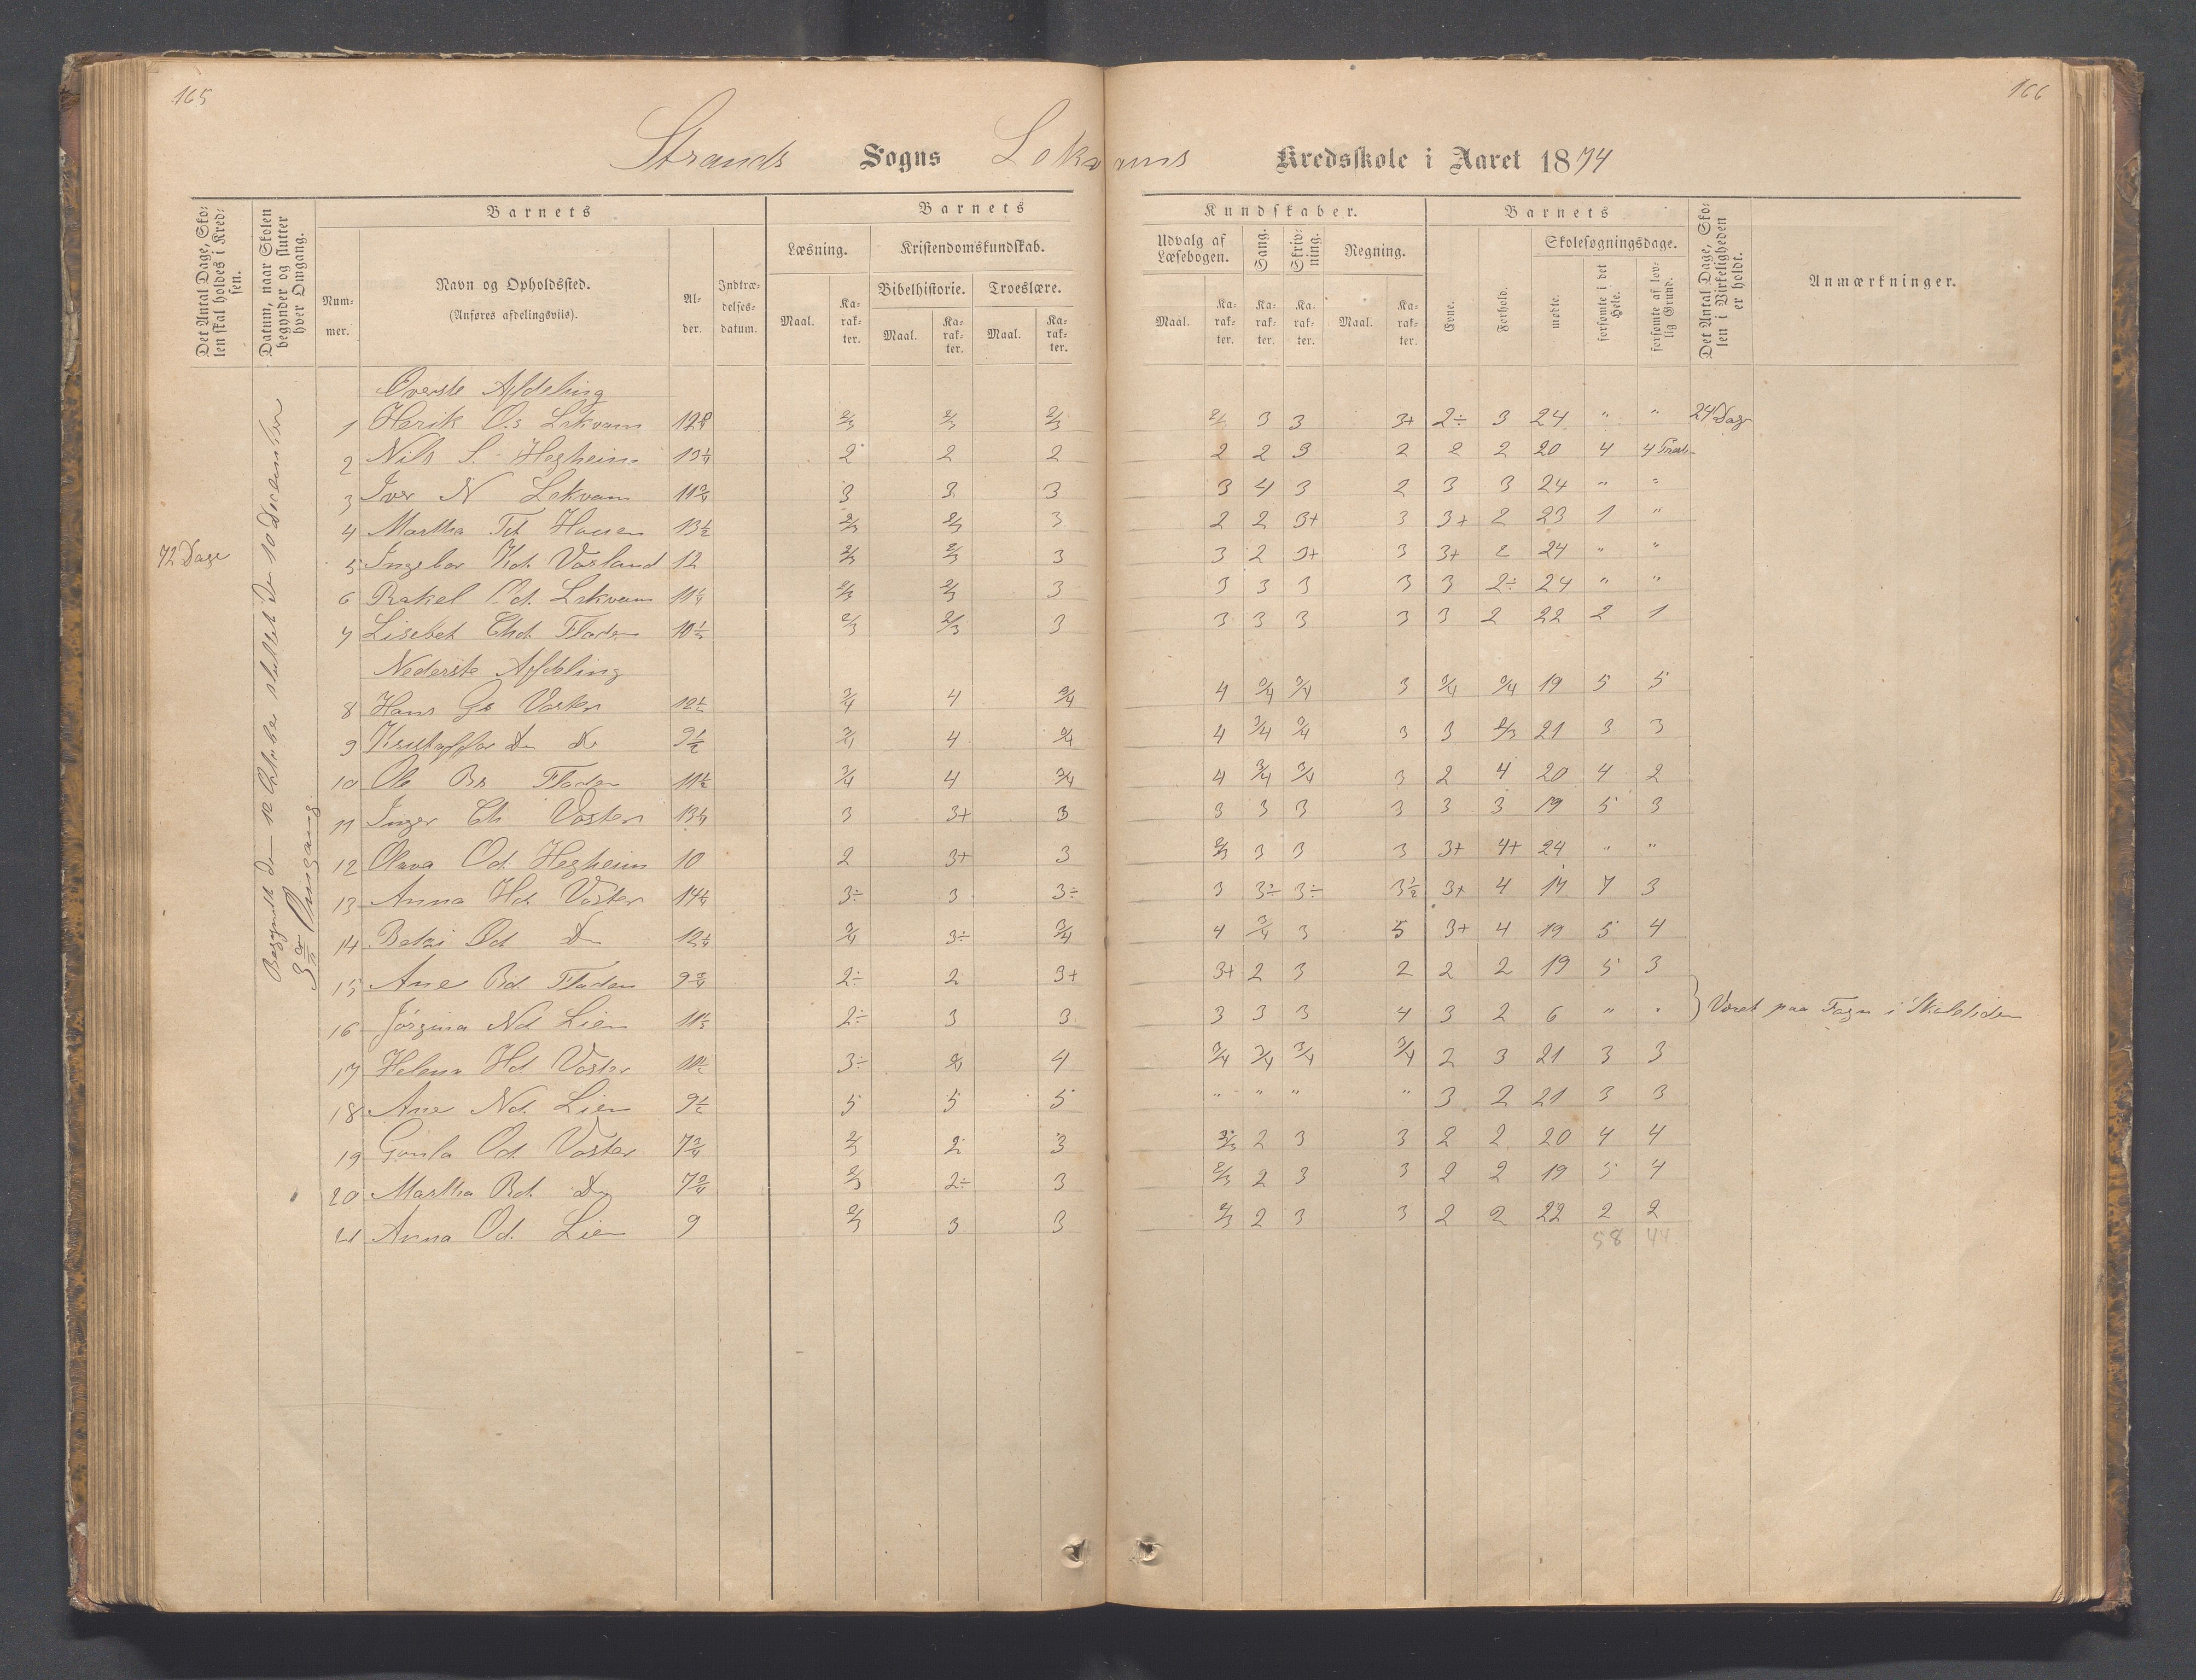 165
166
Strands Sogns Lekvams Kredsskole i Aaret 1874
Det Antal Dage, Skolen skal holdes i Kredsen.
Datum, naar Skolen begynder og slutter hver Omgang.
Barnets
Nummer.
Navn og Opholdssted.
(Anføres afdelingsviis).
Alder.
Indtrædelsesdatum.
Barnets
Læsning.
Kristendomskundskab.
Bibelhistorie. Troeslære.
Maal. Karakter. Maal. Karakter. Maal. Karakter.
Kundskaber.
Udvalg af Læsebogen.
Sang.
Skrivning.
Regning.
Maal. Karakter. Karakter. Karakter. Maal. Karakter.
Barnets
Evne.
Forhold.
Skolesøgningsdage.
mødte.
forsømte i det Hele.
forsømte af lovlig Grund.
Det Antal Dage, Skolen i Virkeligheden er holdt.
Anmærkninger.
72 Dage
Begyndt den 12 Oktober sluttet den 10 december
3die Omgang
Øverste Afdeling
1 Henrik O.s Lekvam 12 3/4 2/3 2/3 2/3 2/3 3 3 3+ 2÷ 3 24 " " 24 Dage
2 Nils S. Hegheim 13 1/4 2 2 2 2 2 3 2 2 2 20 4 4
3 Iver N Lekvam 11 3/4 3 3 3 3 4 3 2 3 3 24 " "
4 Martha Td. Hauen 13 1/2 2/3 2/3 3 2 2 3+ 3 3+ 2 23 1 "
5 Ingebor Kd. Vasland 12 2/3 2/3 3 3 2 3+ 3 3+ 2 24 " "
6 Rakel Od. Lekvam 11 1/4 2/3 2/3 3 3 3 3 3 3 2÷ 24 " "
7 Lisebet Chd. Fladen 10 1/2 2/3 2/3 3 3 3 3 3 3 2 22 2 1
Nederste Afdeling
8 Hans Gs Vaster 12 1/2 3/4 4 3/4 4 3/4 3/4 3 3/4 3/4 19 5 5
9 Kristoffer Do Do 9 1/2 3/4 4 3/4 4 3/4 3/4 3 3 2/3 21 3 3
10 Ole Bs Fladen 11 1/2 3/4 4 3/4 4 3/4 3/4 3 2 4 20 4 2
11 Inger Ch Vaster 13 1/4 3 3+ 3 3 3 3 3 3 3 19 5 3
12 Olava Od. Hegheim 10 2 3+ 3 2/3 3 3 3 3+ 4+ 24 " "
13 Anna Hd. Vaster 14 1/4 3÷ 3 3÷ 3 3÷ 3÷ 3 1/2 3+ 4 17 7 3
14 Betzi Od. Do 12 1/4 3/4 3÷ 3/4 4 3/4 3 5 3+ 4 19 5 4
15 Ane Bd. Fladen 9 3/4 2÷ 2 3+ 3+ 2 3 2 2 2 19 5 3
16 Jörgina Nd Lien 11 1/2 2÷ 3 3 3 3 3 4 3 2 6 " " } Været paa Fogn i Skoletiden
17 Helena Hd. Vaster 10 1/2 3÷ 4 3/4 3/4 3/4 3/4 2 3 21 3 3
18 Ane Nd. Lien 9 1/2 5 5 5 " " " " 3 2 21 3 3
19 Gunla Od. Vaster 7 3/4 2/3 2 3 2 3 3 2 2 20 4 4
20 Martha Rd. Do 7 3/4 2/3 2÷ 3 2/3 2 3 3 2 2 19 5 4
21 Anna Od. Lien 9 2/3 3 3 2/3 2 3 3 2 2 22 2 2
58 44